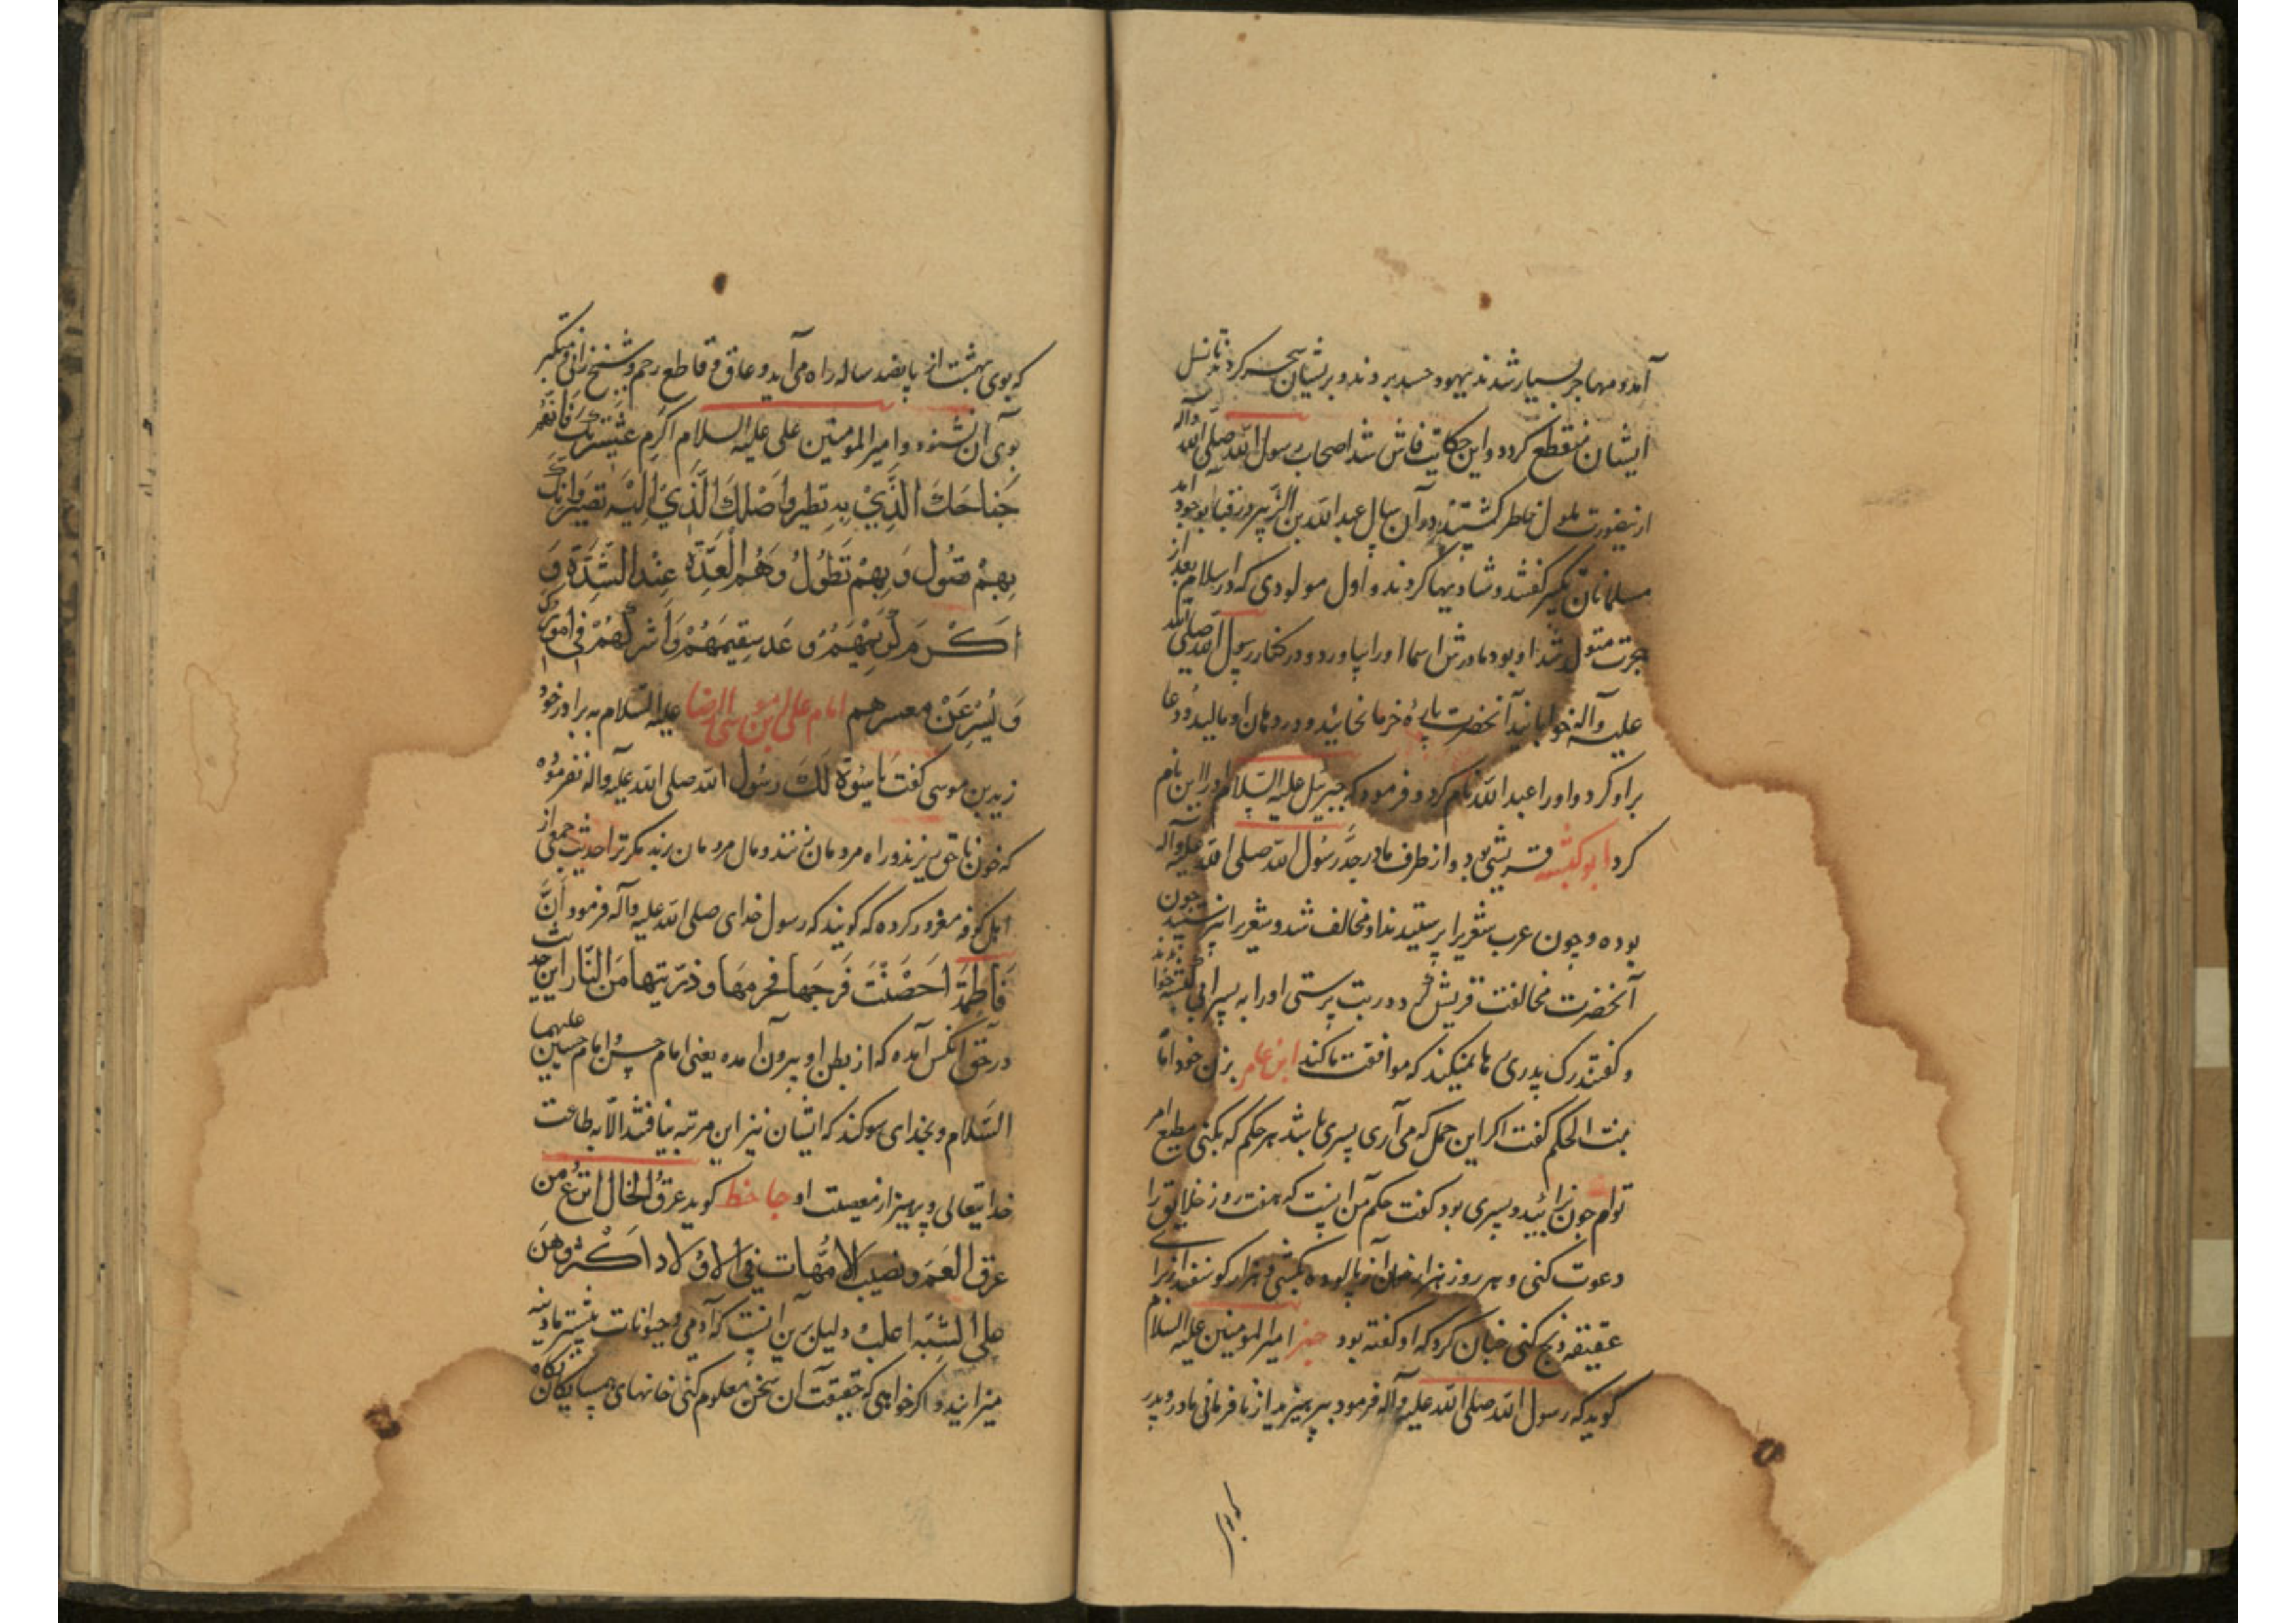 آمد و مهاجر بسیار شدند یهود حسد بردند و بریشان سحر کردند تا نسل
ایشان منقطع کردد و این حکایت فاش شد اصحاب رسول الله صلی الله وآله
ازینصورت ملول خاطر کشتند در آن سال عبدالله بن الزبیر در قبا بوجود آمد
مسلمانان تکبیر کفتند و شادیها کردند و اول مولودی که در اسلام بعد از
هجرت متولد شد او بود مادرش اسما اورا بیاورد و در کنار رسول الله صلی الله
علیه وآله خوابانید آنحضرت پارهٔ خرما بخائید و در دهان او مالید و دعا
براو کرد و اورا عبدالله نام کرد و فرمود که جبرئیل علیه السلام اورا این نام
کرد ابو کبشه قریشی بود و از طرف مادر جد رسول الله صلی الله علیه وآله
بوده و چون عرب شعری را پرستیدند او مخالف شد و شعری را نپرستید چون
آنحضرت مخالفت قریش کرد در بت پرستی اورا به پسر ابی کبشه خواندند
و کفتند رک پدری رها نمیکند که موافقت ما کند ابن عامر بزن خود اما
بنت الحکم کفت اکر این حمل که می آری پسری باشد هر حکم که بکنی مطیع امر
توام چون زائید و پسری بود کفت حکم من اینست که هفت روز خلایق را
دعوت کنی و هر روز هزار خوان از پالوده بکشی و هزار کوسفند از برای
عقیقه ذبح کنی چنان کرد که او کفته بود امیرالمومنین علیه السلام
کوید که رسول الله صلی الله علیه وآله فرمود بپرهیزید از نافرمانی مادر و پدر
که بوی
که بوی بهشت از پانصد ساله راه می آید و عاق و قاطع رحم و شیخ زانی و متکبر
بوی آن نشنود و امیرالمومنین علی علیه السلام اکرم عشیرتک فانهم
جناحک الذی به تطیر و اصلک الذی الیه تصیر و انک
بهم تصول و بهم تطول و هم العدة عند الشدة و
اکرم کریمهم و عد سقیمهم و اشرکهم فی امورک
و یسر عن معسرهم امام علی بن موسی الرضا علیه السلام به برادر خود
زید بن موسی کفت یا سوءة لک رسول الله صلی الله علیه وآله نفرموده
که خون ناحق بریزند و راه مردمان زنند و مال مردمان برند مکر ترا حدیث جمعی از
اهل کوفه مغرور کرده که کویند که رسول خدای صلی الله علیه وآله فرمود ان
فاطمة احصنت فرجها فحرمها و ذریتها من النار این حدیث
در حق آنکس آمده که از بطن او بیرون آمده یعنی امام حسن و امام حسین علیهما
السلام و بخدای سوکند که ایشان نیز این مرتبه نیافتند الا به طاعت
خدایتعالی و پرهیز از معصیت او جاحظ کوید عرق الخال انزع من
عرق العم و نصیب الامهات فی الاولاد اکثر و هن
علی الشبه اغلب و دلیل برین آنست که آدمی و حیوانات بیشتر مادینه
میزایند و اکر خواهی که حقیقت آن سخن معلوم کنی خانهای همسایکان نکاه